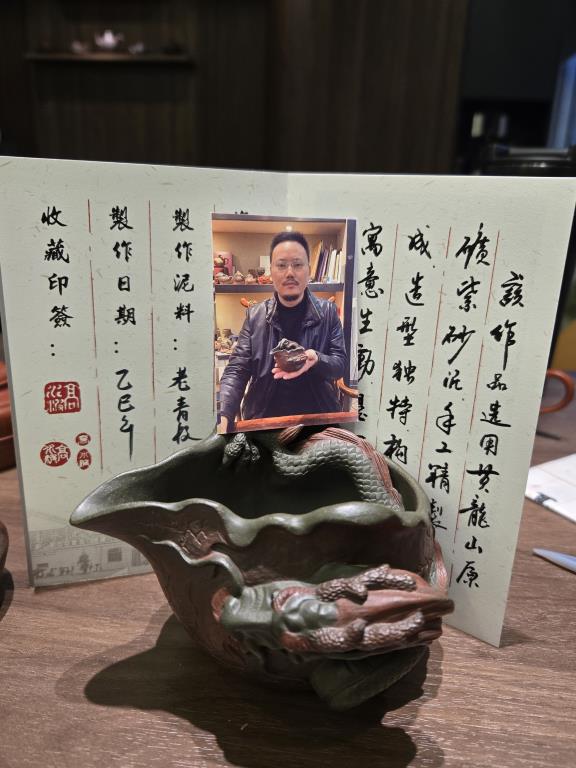 該作品選用黃龍山原
礦紫砂泥手工精製
成造型獨特構
寓意生動
製作泥料：老青段
製作日期：乙巳年
收藏印簽：